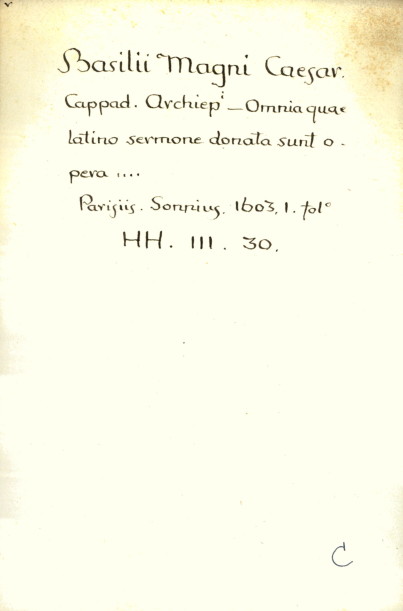 Basilii Magni Caesar.
Cappad. Archiepⁱ — Omnia quae
latino sermone donata sunt o-
pera ....
Parisiis. Sonnius. 1603, 1. folº
HH. III. 30.
C